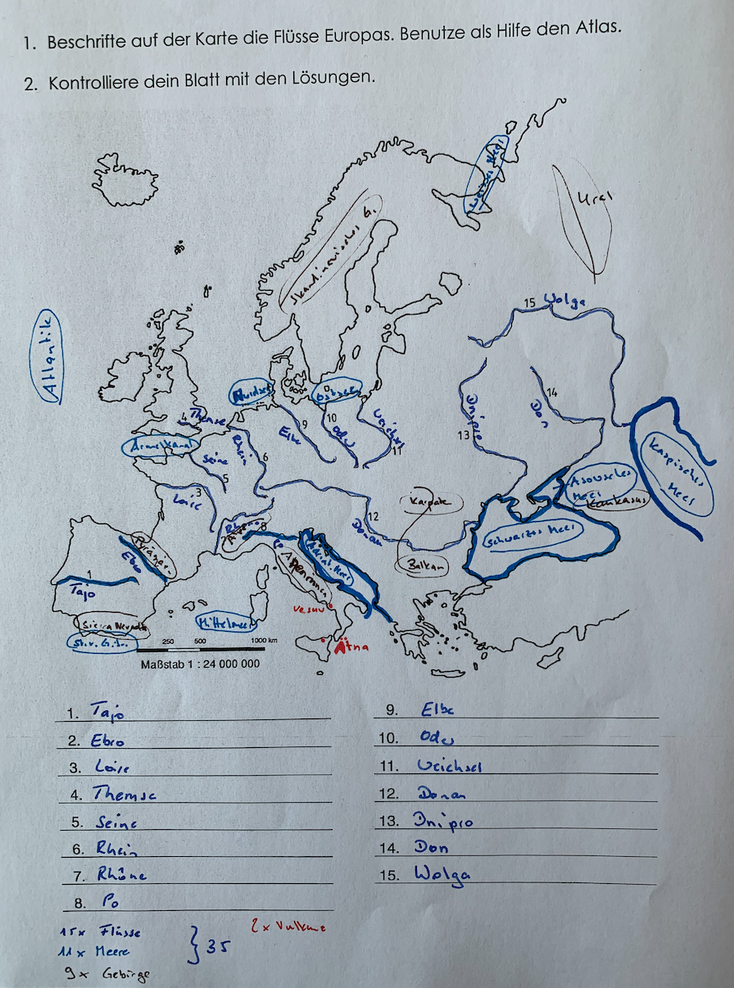 1. Beschrifte auf der Karte die Flüsse Europas. Benutze als Hilfe den Atlas.
2. Kontrolliere dein Blatt mit den Lösungen.
Weißes Meer
Ural
Skandinavisches G.
Atlantik
15 Wolga
Nordsee
Ostsee
4 Themse
Ärmelkanal
Rhein
6
Elbe
9
10
Oder
Weichsel
11
Dnipro
13
Don
14
Seine
5
Loire
3
Kaspisches Meer
Asowsches Meer
Kaukasus
Schwarzes Meer
Karpaten
12
Donau
Balkan
Rhône
8
Po
Adriat. Meer
Appennin
Pyrenäen
Ebro
1
Tajo
Sierra Nevada
Str. v. Gibr.
Mittelmeer
Vesuv
Ätna
250 500 1000 km
Maßstab 1 : 24 000 000
1. Tajo
2. Ebro
3. Loire
4. Themse
5. Seine
6. Rhein
7. Rhône
8. Po
9. Elbe
10. Oder
11. Weichsel
12. Donau
13. Dnipro
14. Don
15. Wolga
15x Flüsse
11x Meere
9x Gebirge
} 35
2x Vulkane